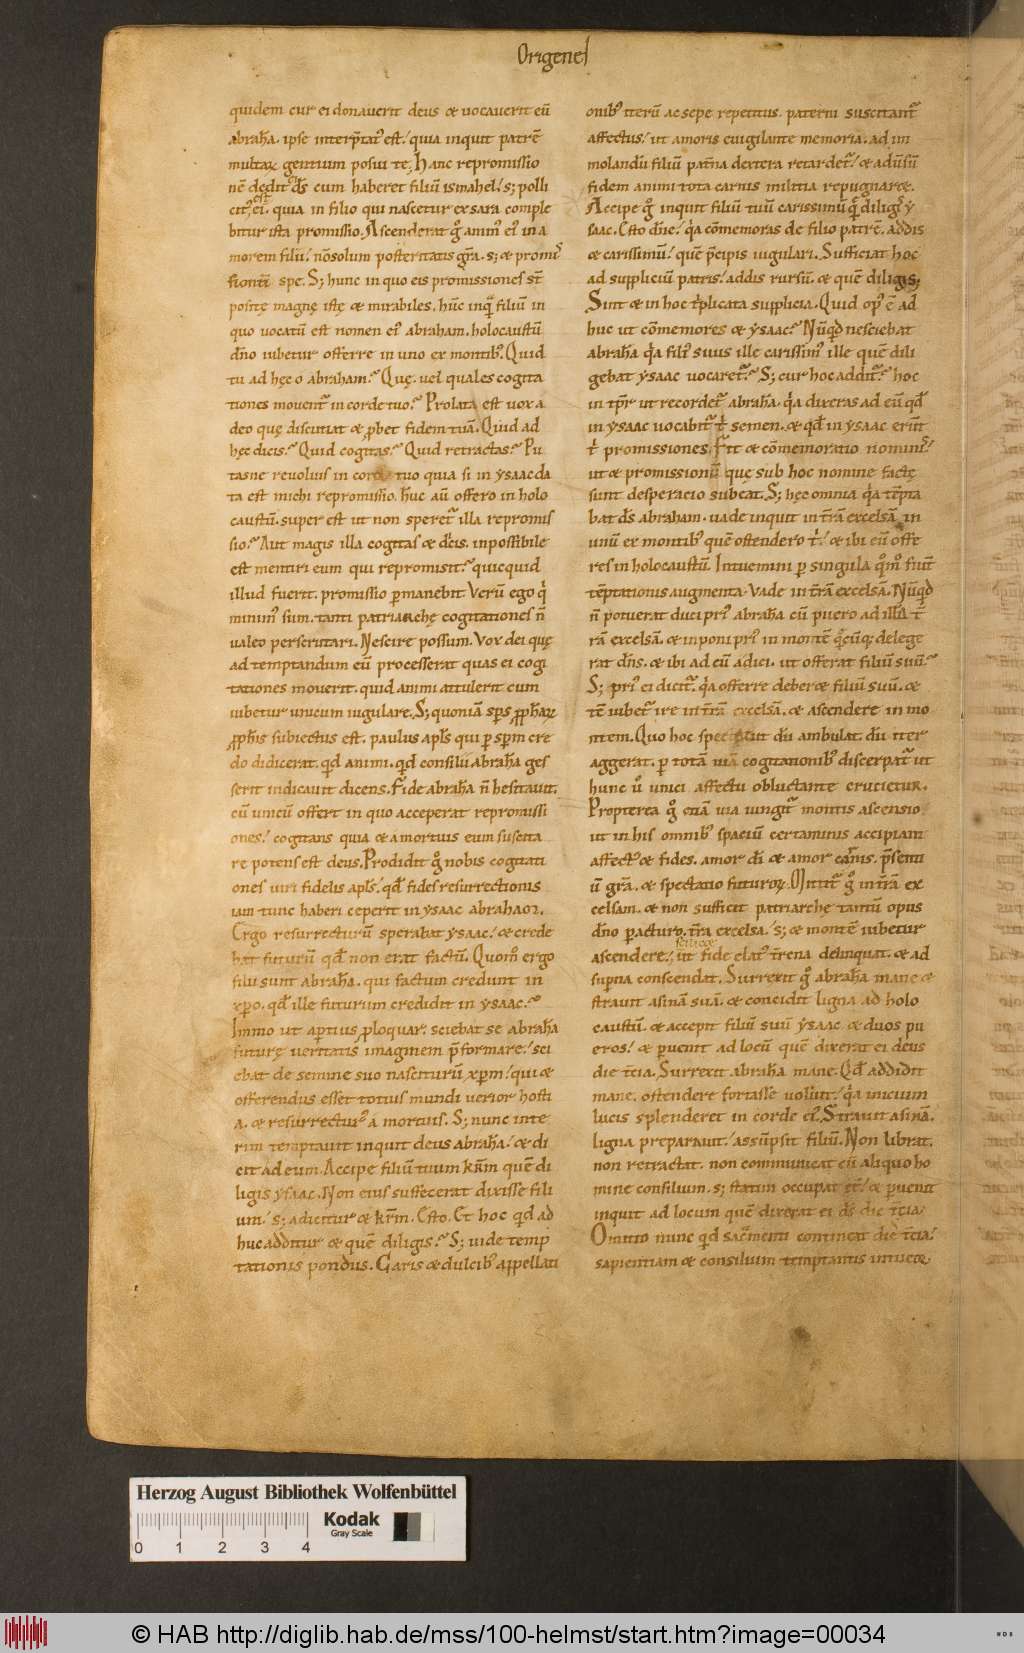 Origenes
quidem cur ei donauerit deus & uocauerit eū
abrahā. ipse interp̄tat᷒ est. quia inquit patrē
multaꝝ gentium posui te. Hanc repromissio
nē dedit ei d̄s cum haberet filiū ismahel. s; polli
cit᷒ est ei. quia in filio qui nascetur ex sara comple
bitur ista promissio. Ascenderat g̊ animū ei᷒ in a
morem filii. nō solum posteritatis gr̄a. s; & promis
sionū spe. S; hunc in quo eis promissiones st̄
positę magnę istę & mirabiles. hūc inq̄ filiū in
quo uocatū est nomen ei᷒ abraham. holocaustū
dn̄o iubetur offerre in uno ex montib᷒. Quid
tu ad hęc o abraham? Quę. uel quales cogita
tiones mouent᷑ in corde tuo? Prolata est uox a
deo quę discutiat & ꝓbet fidem tuā. Quid ad
hęc dicis? Quid cogitas? Quid retractas? Pu
tasne reuoluis in corde tuo quia si in ysaac da
ta est michi repromissio. hūc aū offero in holo
caustū. super est ut non speret᷑ illa repromis
sio? Aut magis illa cogitas & dicis. inpossibile
est mentiri eum qui repromisit? quicquid
illud fuerit. promissio ꝑmanebit. Verū ego qⁱ
minim᷒ sum. tanti patriarchę cogitationes n̄
ualeo perscrutari. Nescire possum. Vox dei quę
ad temptandum eū processerat quas ei cogi
tationes mouerit. quid animi attulerit cum
iubetur unicum iugulare. S; quoniā sp̄s ꝓph̄aꝝ
ꝓph̄is subiectus est. paulus apl̄s qui ꝑ sp̄m cre
do didicerat. qd̄ animi. qd̄ consilii abrahā ges
serit indicauit dicens. Fide abrahā n̄ hesitauit.
cū unicū offert in quo acceperat repromissi
ones. cogitans quia & a mortuis eum suscita
re potens est deus. Prodidit g̊ nobis cogitati
ones uiri fidelis apl̄s. qd̄ fides resurrectionis
iam tunc haberi ceperit in ysaac abrahaꝫ.
Ergo resurrecturū sperabat ysaac. & crede
bat futurū qd̄ non erat factū. Quom̊ ergo
filii sunt abrahā. qui factum credunt in
xp̄o. qd̄ ille futurum credidit in ysaac?
Immo ut aꝑtius ꝓloquar. sciebat se abrahā
futurę ueritatis imaginem p̄formare. sci
ebat de semine suo nasciturū xp̄m. qui &
offerendus esset totius mundi uerior hosti
a. & resurrectur᷒ a mortuis. S; nunc inte
rim temptauit inquit deus abrahā. & di
cit ad eum. Accipe filiū tuum kr̄m quē di
ligis ysaac. Non eius suffecerat dixisse fili
um. s; adicitur & kr̄m. Esto. Et hoc qd̄ ad
huc additur & quē diligis? S; uide temp
tationis pondus. Caris & dulcib᷒ appellati
onib᷒ iterū ac sepe repetitus. paterni suscitant᷑
affectus. ut amoris euigilante memoria. ad im
molandū filiū pat̄na dextera retardet᷑. & aduersū
fidem animi tota carnis militia repugnar&.
Accipe g̊ inquit filiū tuū carissimū quē diligis y
saac. Esto dn̄e. qa cōmemoras de filio patrē. addis
& carissimū. quē p̄cipis iugulari. Sufficiat hoc
ad suppliciū patris. addis rursū. & quē diligis;
Sint & in hoc tⁱplicata supplicia. Quid op᷒ ē ad
huc ut cōmemores & ysaac? Nūqd nesciebat
abrahā qa fili᷒ suus ille carissim᷒ ille quē dili
gebat ysaac uocaret᷑? S; cur hoc addit᷑? hoc
in tp̄r ut recordet᷑ abrahā. qa dixeras ad eū qd̄
in ysaac uocabit᷑ tⁱ semen. & qd̄ in ysaac erūt
tⁱ promissiones. Fit & cōmemoratio nominis.
ut & promissionū quę sub hoc nomine factę
sunt desperacio subeat. S; hęc omnia qa tēpta
bat d̄s abraham. uade inquit in tr̄am excelsā in
unū ex montib᷒ quē ostendero tⁱ. & ibi eū offe
res in holocaustū. Intuemini ꝑ singula qm̊ fiunt
tēptationis augmenta. Vade in tr̄am excelsā. Nūqd
n̄ potuerat duci pri᷒ abrahā cū puero ad illā t̄
rā excelsā. & inponi pri᷒ in montē qēcūq; delege
rat dn̄s. & ibi ad eū adici. ut offerat filiū suū?
S; pri᷒ ei dicit᷑. qa offerre deber& filiū suū. &
tc̄ iubet᷑ ire in tr̄am excelsā. & ascendere in mo
ntem. Quo hoc spectat ut dū ambulat. dū iter
aggerat. ꝑ totā uiā cogitationib᷒ discerpat᷑ ut
hunc ů unici affectu obluctante crucietur.
Propterea g̊ etiā uia iungit᷑ montis ascensio
ut in his omnib᷒ spaciū certaminis accipiant
affect᷒ & fides. amor di̅ & amor carnis. p̄senti
ū gr̄a. & spectatio futuroꝝ. Mittit᷑ g̊ in tr̄am ex
celsam. & non sufficit patriarche tantū opus
dn̄o ꝑacturo. tr̄ra excelsa. s; & montē iubetur
scilicet
ascendere. ut fide elat᷒ t̄rena delinquat. & ad
suꝑna conscendat. Surrexit g̊ abrahā mane &
strauit asinā suā. & concidit ligna ad holo
caustū. & accepit filiū suū ysaac & duos pu
eros. & ꝑuenit ad locū quē dixerat ei deus
die tc̄ia. Surrexit abrahā mane. Qd̄ addidit
mane. ostendere fortasse uoluit. qa inicium
lucis splenderet in corde ei᷒. Strauit asinā.
ligna preparauit. assūpsit filiū. Non librat.
non retractat. non communicat cū aliquo ho
mine consilium. s; statim occupat iter. & ꝑuenit
inquit ad locum quē dixerat ei d̄s die tc̄ia.
Omitto nunc qd sacr̄menti contineat die tc̄ia.
sapientiam & consilium temptantis intue&.
Herzog August Bibliothek Wolfenbüttel
Kodak
Gray Scale
0 1 2 3 4
© HAB http://diglib.hab.de/mss/100-helmst/start.htm?image=00034